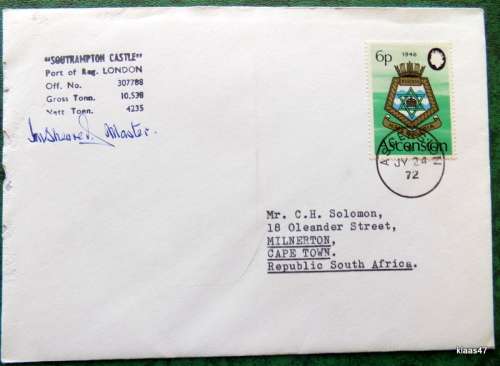 "SOUTHAMPTON CASTLE"
Port of Reg. LONDON
Off. No. 307788
Gross Tonn. 10,538
Nett Tonn. 4235
Master.
6p
1948
Ascension
ASCENSION
JY 24
72
Mr. C.H. Solomon,
18 Oleander Street,
MILNERTON,
CAPE TOWN.
Republic South Africa.
klaas47